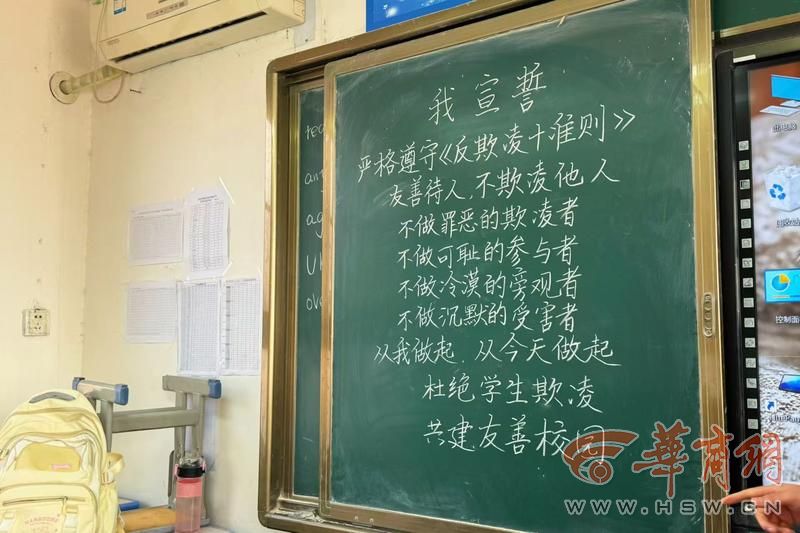 我宣誓
严格遵守《反欺凌十准则》
友善待人,不欺凌他人
不做罪恶的欺凌者
不做可耻的参与者
不做冷漠的旁观者
不做沉默的受害者
从我做起,从今天做起
杜绝学生欺凌
共建友善校园
华商网
WWW.HSW.CN
控制面